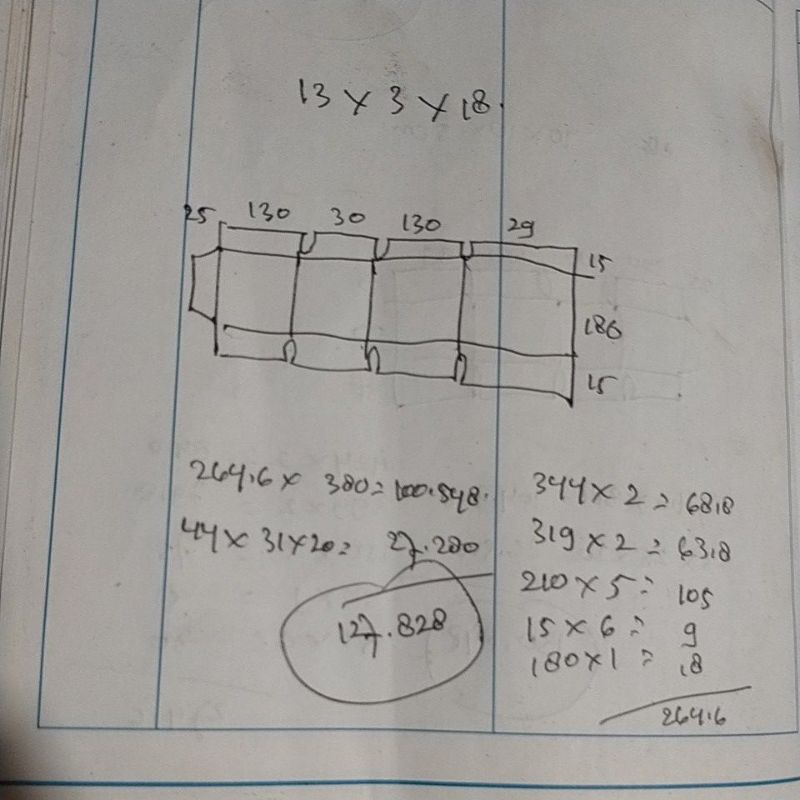 13 x 3 x 18.
25 130 30 130 29
15
186
15
264.6 x 380 = 100.548.
44 x 31 x 20 = 27.280
127.828
344 x 2 = 68.8
319 x 2 = 63.8
210 x 5 = 105
15 x 6 = 9
180 x 1 = 18
264.6